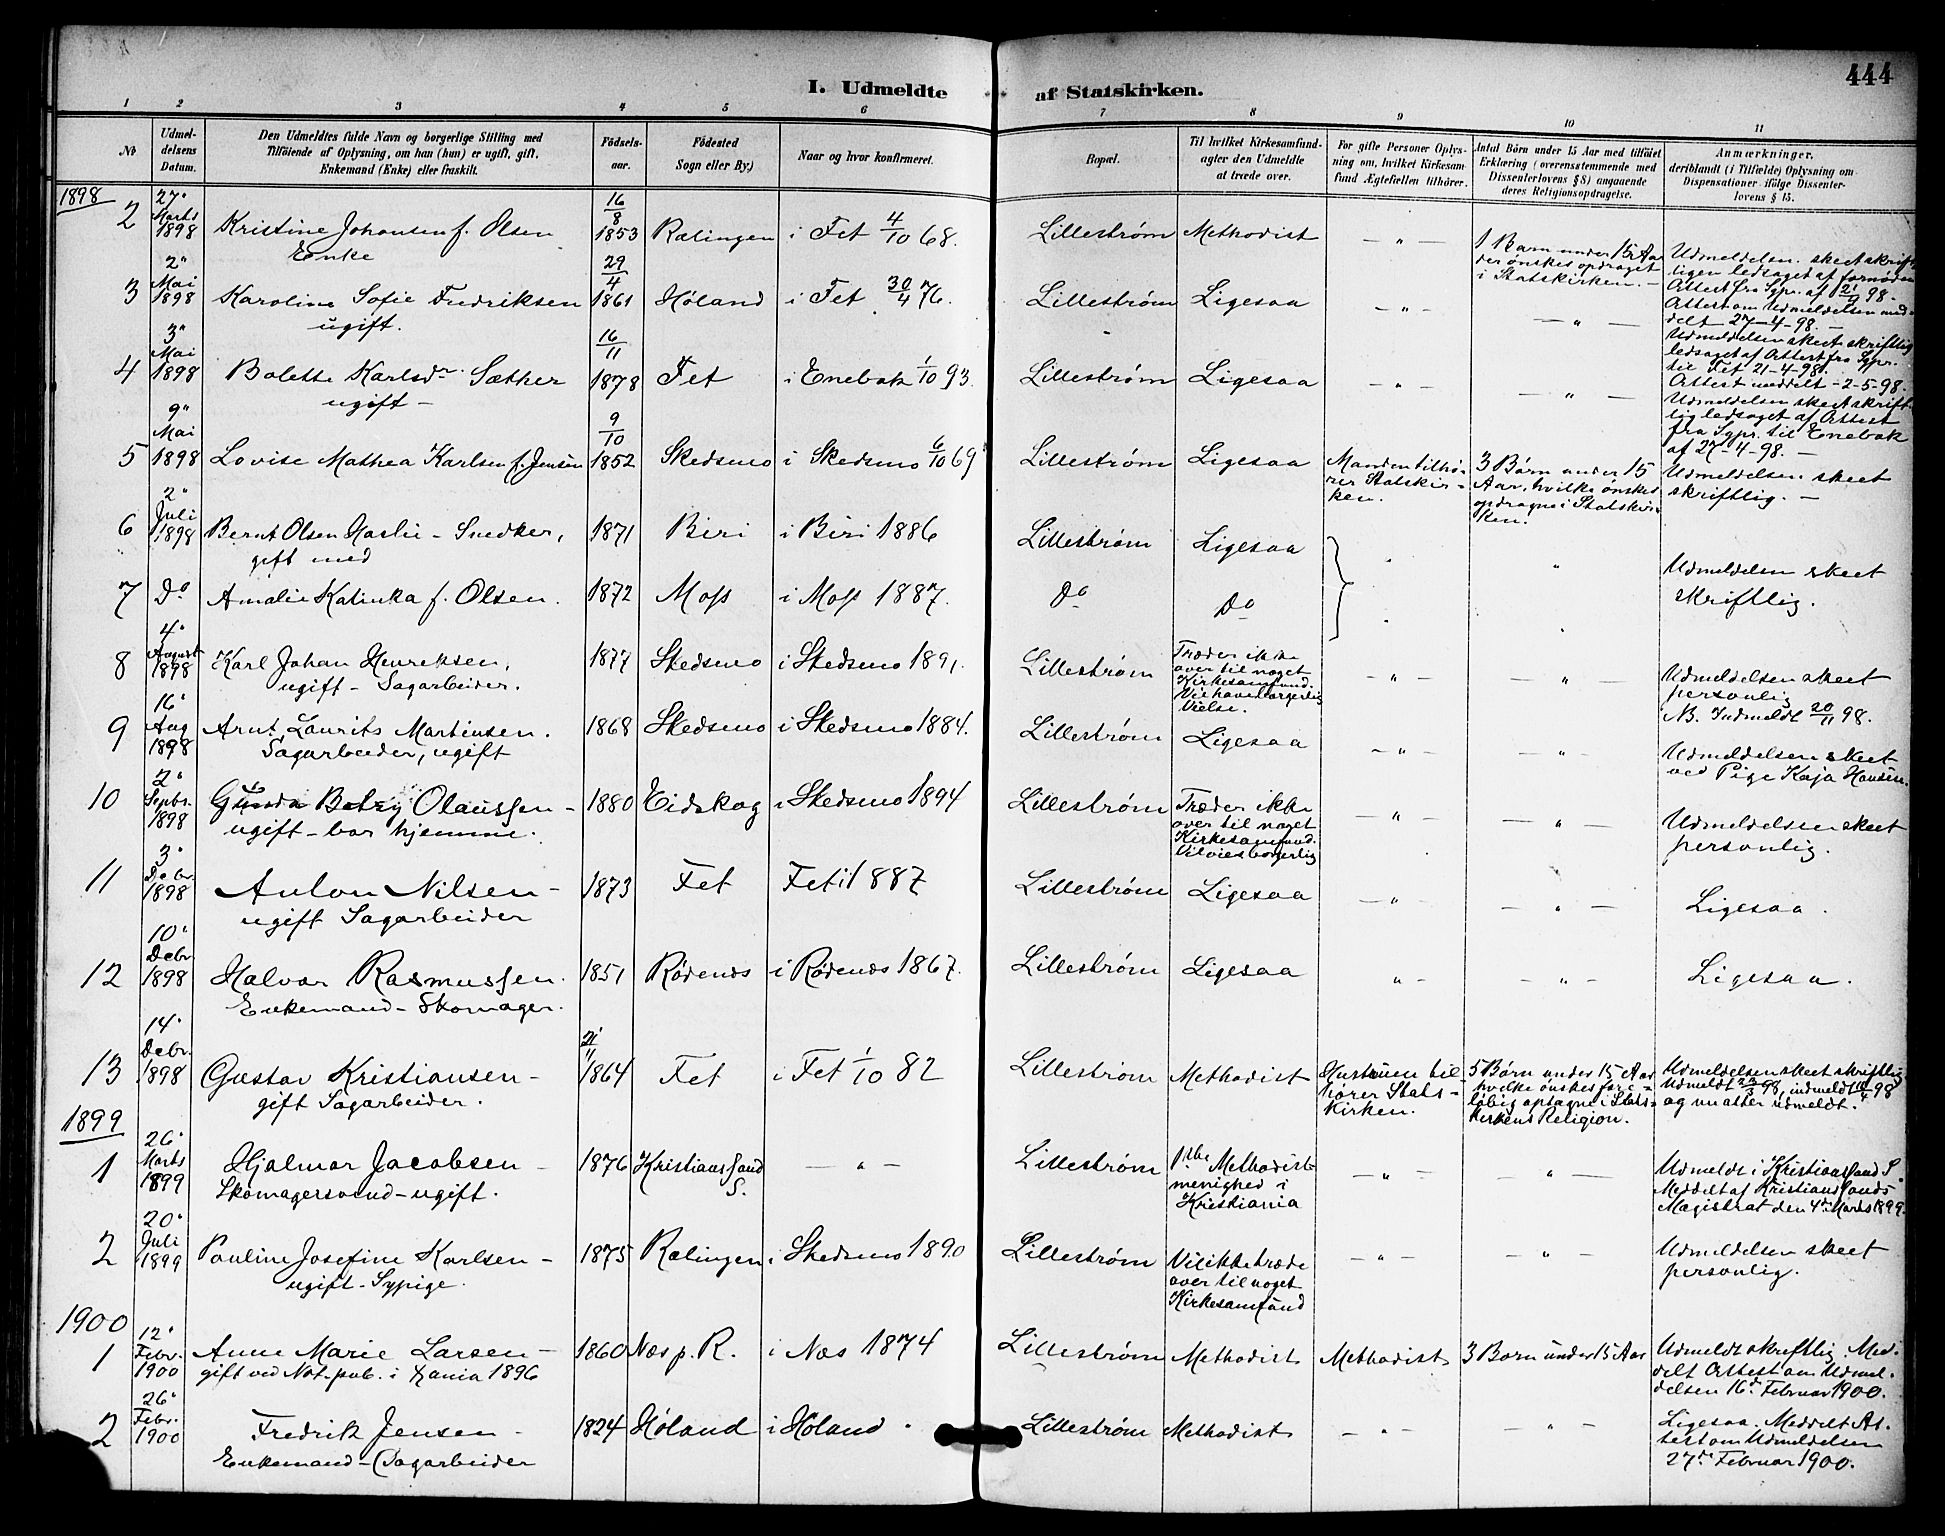 444
I. Udmeldte af Statskirken.
1 2 3 4 5 6 7 8 9 10 11
No
Udmeldelsens Datum.
Den Udmeldtes fulde Navn og borgerlige Stilling med
Tilföiende af Oplysning, om han (hun) er ugift, gift,
Enkemand (Enke) eller fraskilt.
Födselsaar.
Födested
Sogn eller By.)
Naar og hvor konfirmeret.
Bopæl.
Til hvilket Kirkesamfund-
agter den Udmeldte
at træde over.
For gifte Personer Oplys-
ning om, hvilket Kirkesam-
fund Ægtefællen tilhörer.
Antal Börn under 15 Aar med tilföiet
Erklæring (overensstemmende med
Dissenterlovens § 8) angaaende
deres Religionsopdragelse.
Anmærkninger,
deriblandt (i Tilfælde) Oplysning om
Dispensationer ifölge Dissenter-
lovens § 15.
1898
2 27' Marts 1898 Kristine Johansen f. Olsen 16/8 1853 Rælingen i Fet 4/10 68. Lillestrøm Methodist — " —
Enke
1 Barn under 15 Aar
der ønskes opdraget
i Statskirken. —
Udmeldelsen skeet skrift-
ligen ledsaget af fornøden
Attest fra Sgpr. af 21/9 98.
Attest om Udmeldelsen med-
delt 27-4-98. —
3 2' Mai 1898 Karoline Sofie Fredriksen 29/4 1861 Høland i Fet 30/4 76. Lillestrøm Ligesaa — " — — " —
ugift.
Udmeldelsen skeet skriftlig
ledsaget af Attest fra Sgpr.
til Fet 21-4-98.
Attest meddelt -2-5-98.
4 3' Mai 1898 Bolette Karlsdr. Sæther 16/11 1878 Fet i Enebak 1/10 93. Lillestrøm Ligesaa — " — — " —
ugift —
Udmeldelsen skeet skrift-
lig ledsaget af Attest
fra Sgpr. til Enebak
af 27-4-98. —
5 9' Mai 1898 Lovise Mathea Karlsen f. Jensen 9/10 1852 Skedsmo i Skedsmo 6/10 69 Lillestrøm Ligesaa
Manden tilhø-
rer Statskir-
ken.
3 Børn under 15
Aar, hvilke ønskes
opdragne i Statskir-
ken.
Udmeldelsen skeet
skriftlig. —
6 2' Juli 1898 Bernt Olsen Haslie - Snedker, 1871 Biri i Biri 1886 Lillestrøm Ligesaa " "
gift med
Udmeldelsen skeet
skriftlig.
7 Do Amalie Katinka f. Olsen. 1872 Moss i Moss 1887. Do Do " "
8 4' August 1898 Karl Johan Henriksen, 1877 Skedsmo i Skedsmo 1891. Lillestrøm
ugift - Sagarbeider.
Træder ikke
over til noget
Kirkesamfund.
Vil have borgerlig
Vielse.
— " — — " —
Udmeldelsen skeet
personlig
N. Indmeldt 20/11 98.
9 16' Aug 1898 Arnt Laurits Martinsen. 1868 Skedsmo i Skedsmo 1884. Lillestrøm Ligesaa — " — — " —
Sagarbeider, ugift
Udmeldelsen skeet
ved Pige Kaja Hansen.
10 2' Septbr. 1898 Gunda Betzy Olaussen — 1880 Eidskog i Skedsmo 1894 Lillestrøm
ugift - bor hjemme.
Træder ikke
over til noget
Kirkesamfund.
Vil vies borgerlig
— " — — " —
Udmeldelsen skeet
personlig.
11 3' Debr. 1898 Anton Nilsen — 1873 Fet Fet i 1887 Lillestrøm Ligesaa — " — — " — Ligesaa.
ugift Sagarbeider
12 10' Debr 1898 Halvor Rasmussen. 1851 Rødenes i Rødenes 1867. Lillestrøm Ligesaa " — — " — Ligesaa.
Enkemand - Skomager.
13 14' Debr. 1898 Gustav Kristiansen — 21/11 1864 Fet i Fet 1/10 82 Lillestrøm Methodist
gift Sagarbeider.
Hustruen til-
hører Stats-
kirken.
5 Børn under 15 Aar
hvilke ønskes fore-
løbig optagne i Stats-
kirkens Religion.
Udmeldelsen skeet skriftlig
Udmeldt 23/3 98, indmeldt 10/4 98
og nu atter udmeldt.
1899
1 26' Marts 1899 Hjalmar Jacobsen — 1876 Kristianssand S. — " — Lillestrøm
Skomagersvend - ugift.
1ste Methodist-
menighed i
Kristiania
— " — — " —
Udmeldt i Kristianssand S.
Meddelt af Kristianssands
Magistrat den 4de Marts 1899.
2 20' Juli 1899 Pauline Josefine Karlsen — 1875 Rælingen i Skedsmo 1890 Lillestrøm
ugift - Sypige.
Vil ikke træde
over til noget
Kirkesamfund
— " — — " —
Udmeldelsen skeet
personlig.
1900
1 12' Febr. 1900 Anne Marie Larsen — 1860 Næs p. R. i Næs 1874 Lillestrøm Methodist Methodist 3 Barn under 15 Aar
gift ved Not. pub. i Xania 1896
Udmeldt skriftlig. Med-
delt Attest om Udmel-
delsen 16d Februar 1900.
2 26' Febr. 1900 Fredrik Jensen — 1824 Høland i Høland. Lillestrøm Methodist — " — — " —
Enkemand - (Sagarbeider
Ligesaa. Meddelt At-
test om Udmeldelsen
27de Februar 1900.